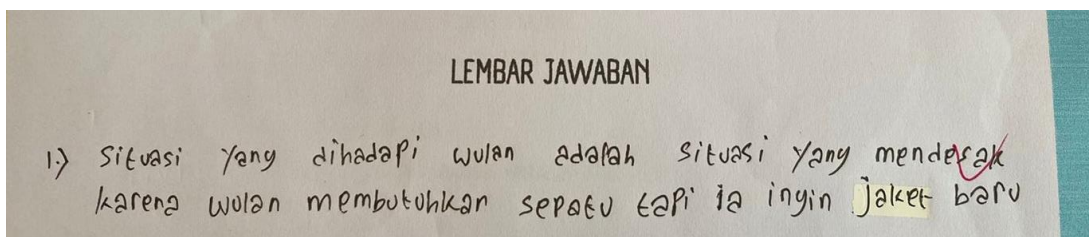 LEMBAR JAWABAN
1.) Situasi yang dihadapi wulan adalah situasi yang mendesak
karena wulan membutuhkan sepatu tapi ia ingin jaket baru